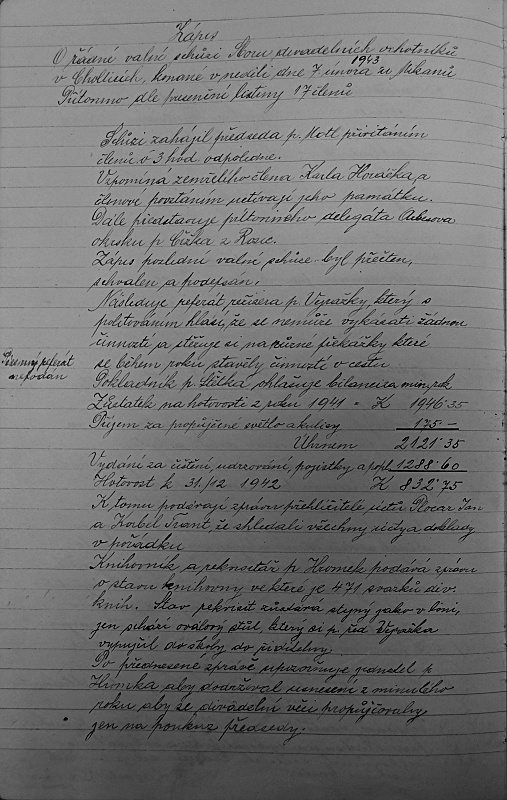 Zápis
O řádné valní schůzi Sboru divadelních ochotníků
1943
v Chotlicích, konané v neděli dne 7. února u Mikanů
Přítomno dle presenční listiny 17 členů
Schůzi zahájil předseda p. Motl přivítáním
členů o 3 hod. odpoledne.
Vzpomíná zemřelého člena Karla Horáčka, a
členové povstáním uctívají jeho památku.
Dále představuje přítomného delegáta Arbesova
okrsku p. Čížka z Rosic.
Zápis poslední valní schůze byl přečten,
schválen a podepsán.
Následuje referát režiséra p. Vyražky, který s
politováním hlásí, že se nemůže vykázati žádnou
činností a stěžuje si na různé překážky které
se během roku stavěly činnosti v cestu
Písemný referát
nepodán
Pokladník p. ohlašuje bilanci za min. rok
Zůstatek na hotovosti z roku 1941 = K 1946·35
Příjem za propůjčené světlo a kulisy 175 —
Úhrnem 2121·35
Vydání za čištění, udržování, pojistky a popl. 1288·60
Hotovost k 31./12 1942 K 832·75
K tomu podávají zprávu přehlížitelé účtů Rocar Jan
a Korbel Frant, že shledali všechny účty a doklady
v pořádku
Knihovník a rekvisitář p. Hromek podává zprávu
o stavu knihovny ve které je 471 svazků div.
knih. Stav rekvisit zůstává stejný jako v loni,
jen schází oválový stůl, který si p. řid. Vyražka
vypůjčil do školy do ředitelny.
Po přednesené zprávě upozorňuje jednatel p.
Hromka aby dodržoval usnesení z minulého
roku aby se divadelní věci propůjčovaly
jen na poukaz předsedy.